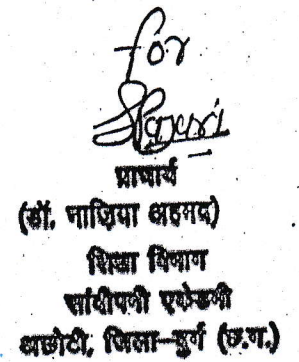 for
प्राचार्य
(डॉ. नाज़िया अहमद)
शिक्षा विभाग
सांदीपनी एकेडमी
अछोटी, जिला-दुर्ग (छ.ग.)